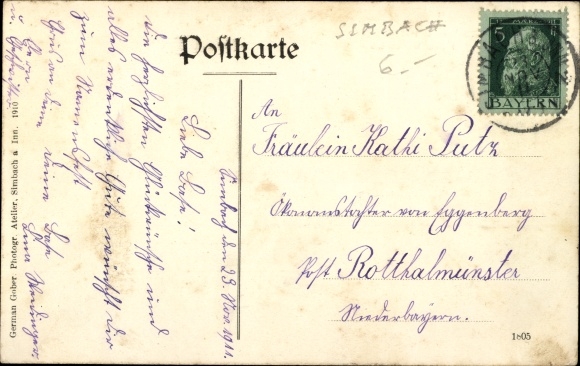 SIMBACH
6.-
Postkarte
5
BAYERN
Simbach den 23. Nov. 1911.
Liebe Base!
die herzlichsten Glückwünsche und
alles erdenkliche Gute wünscht dir
zum Namensfest
deine Base
Gruß an deine
An
Fräulein Kathi Putz
Ökonomstochter von Eggenberg
Post Rotthalmünster
Niederbayern.
German Gober. Photogr. Atelier, Simbach a Inn. 1910
1805